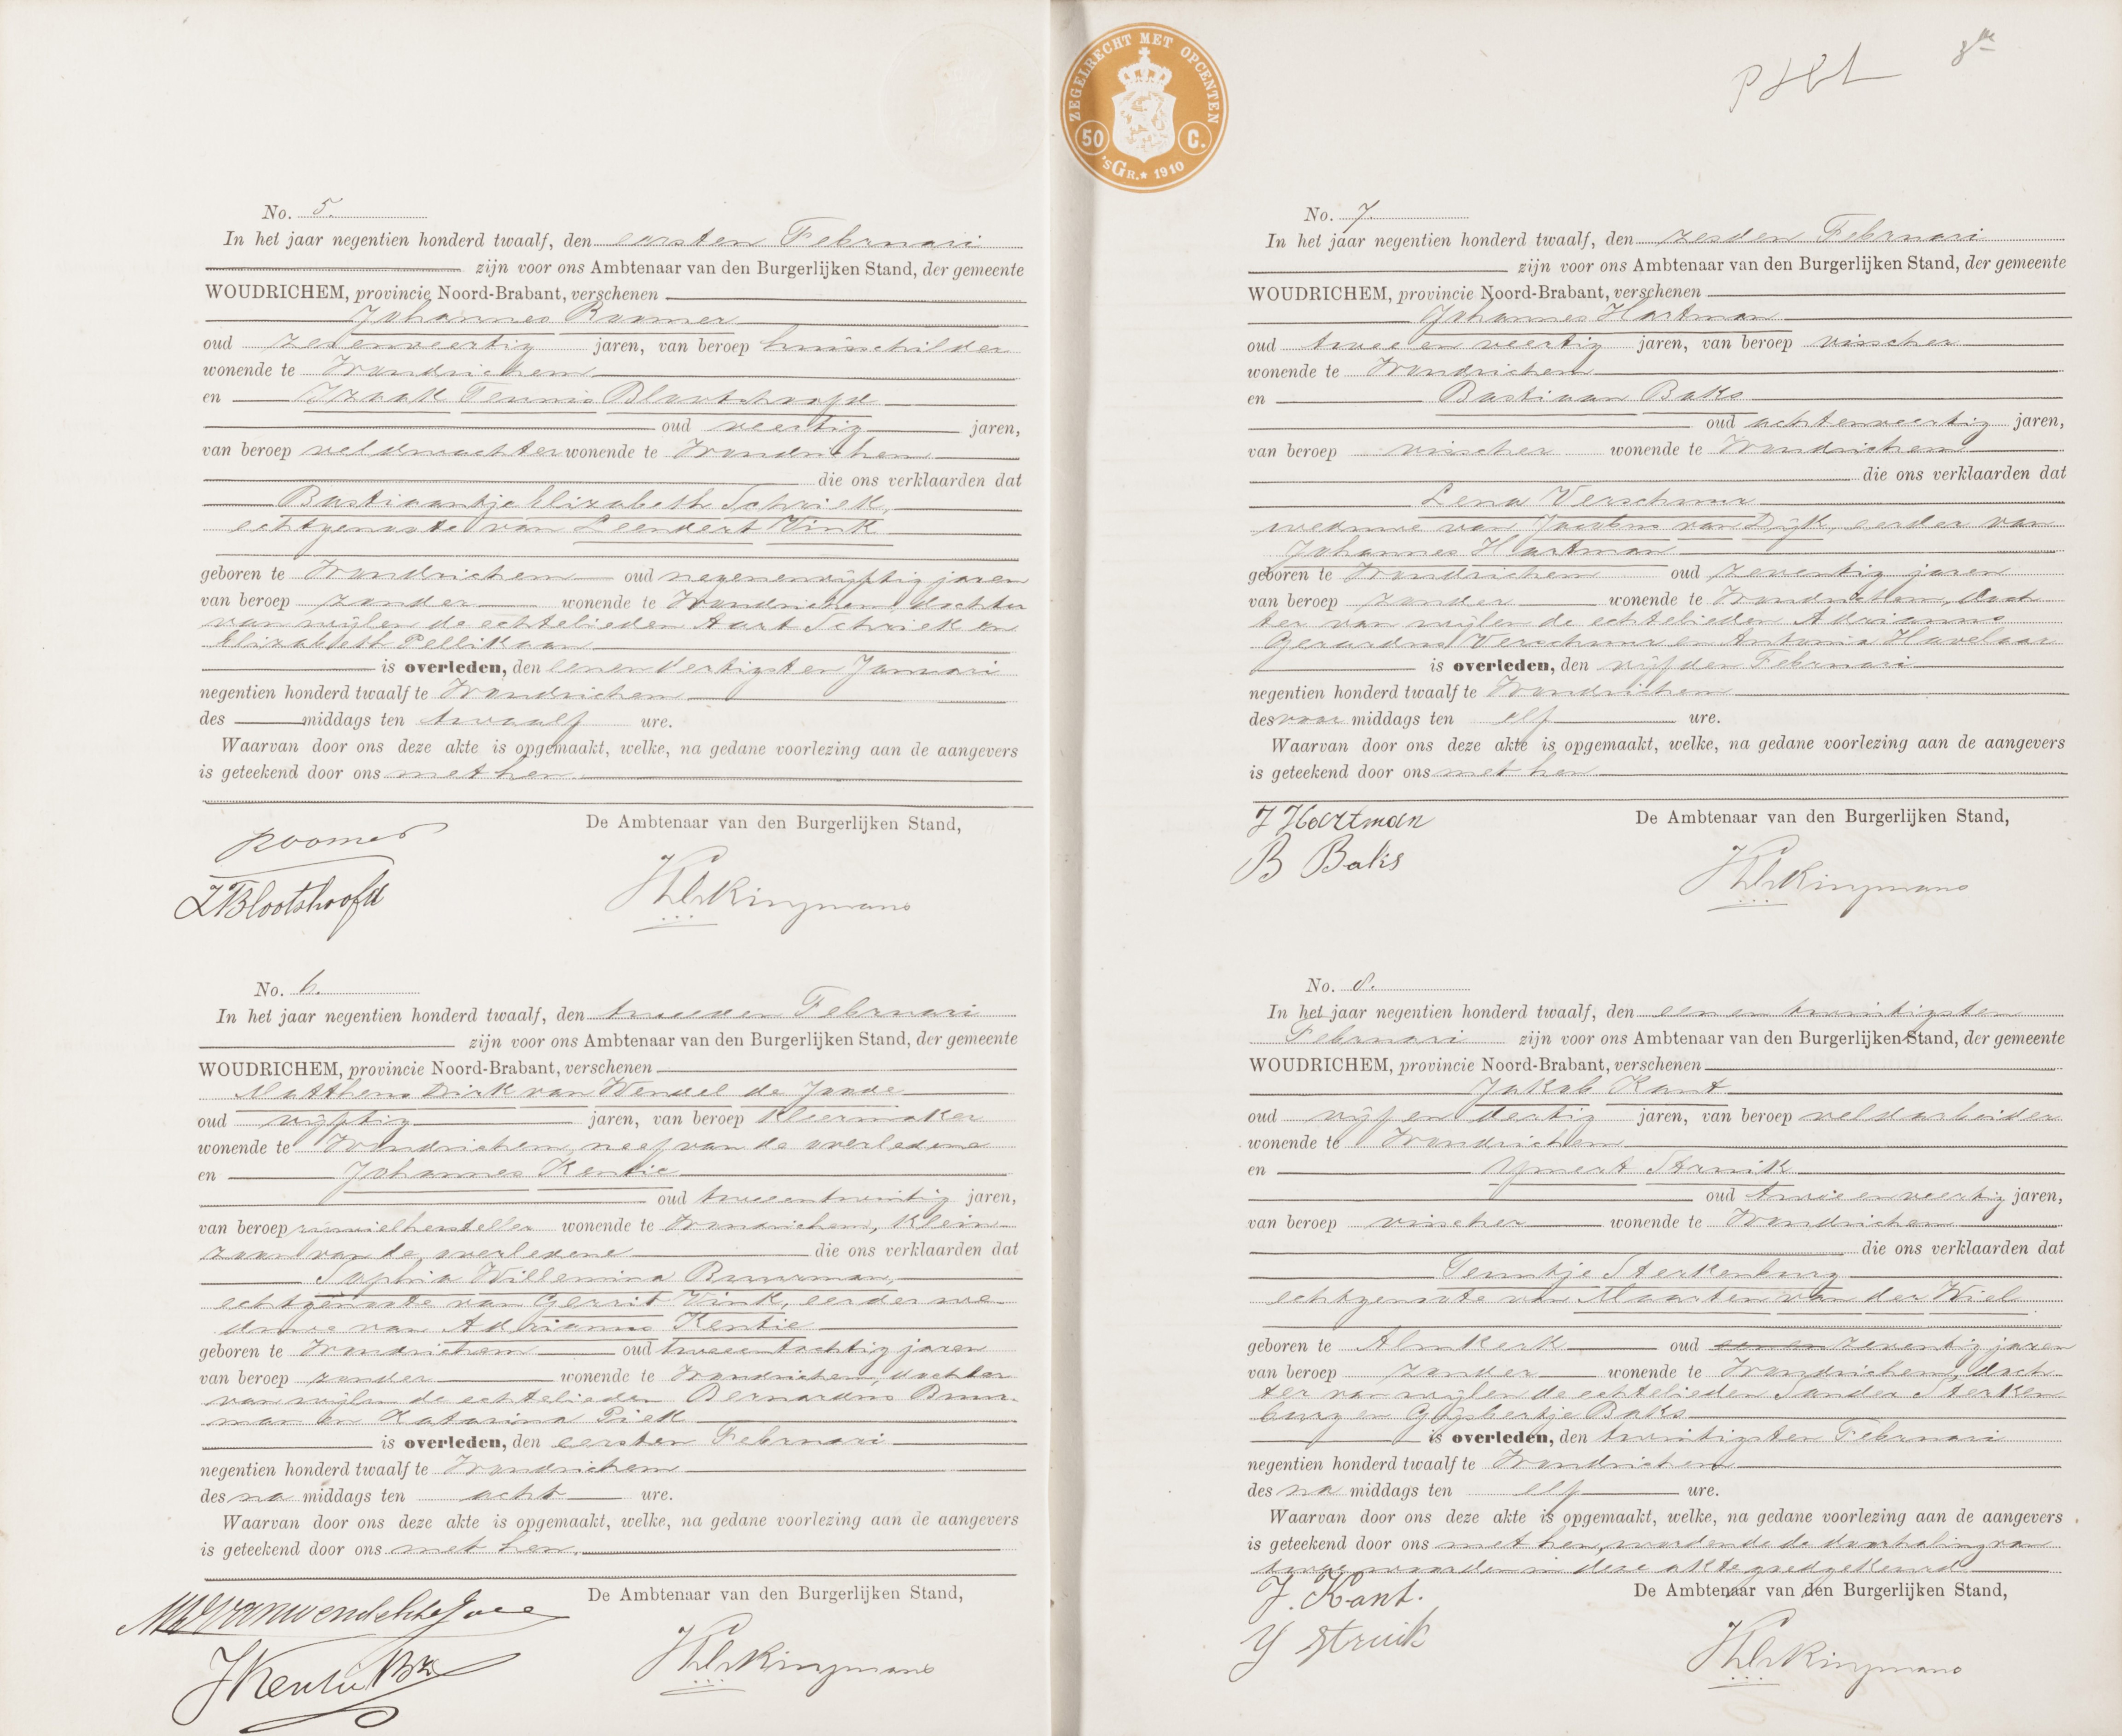 No. 5.
In het jaar negentien honderd twaalf, den eersten Februari
zijn voor ons Ambtenaar van den Burgerlijken Stand, der gemeente
WOUDRICHEM, provincie Noord-Brabant, verschenen
Johannes Roomer
oud zevenenveertig jaren, van beroep huisschilder
wonende te Woudrichem
en Izaak Teunis Blootshoofd
oud veertig jaren,
van beroep veldwachter wonende te Woudrichem
die ons verklaarden dat
Bastiaantje Elizabeth Schriek,
echtgenoote van Leendert Vink
geboren te Woudrichem oud negenenvijftig jaren
van beroep zonder wonende te Woudrichem, dochter
van wijlen de echtelieden Aart Schriek en
Elizabeth Pellikaan
is overleden, den eenendertigsten Januari
negentien honderd twaalf te Woudrichem
des middags ten twaalf ure.
Waarvan door ons deze akte is opgemaakt, welke, na gedane voorlezing aan de aangevers
is geteekend door ons met hen.
De Ambtenaar van den Burgerlijken Stand,
Roomer
I T Blootshoofd
No. 6.
In het jaar negentien honderd twaalf, den tweeden Februari
zijn voor ons Ambtenaar van den Burgerlijken Stand, der gemeente
WOUDRICHEM, provincie Noord-Brabant, verschenen
Mattheus Dirk van Wendel de Joode
oud vijftig jaren, van beroep kleermaker
wonende te Woudrichem, neef van de overledene
en Johannes Kentie
oud tweeentwintig jaren,
van beroep rijwielhersteller wonende te Woudrichem, klein-
zoon van de overledene die ons verklaarden dat
Sophia Willemina Buurman,
echtgenoote van Gerrit Vink, eerder we-
duwe van Adrianus Kentie
geboren te Woudrichem oud tweeentachtig jaren
van beroep zonder wonende te Woudrichem, dochter
van wijlen de echtelieden Bernardus Buur-
man en Katarina Piek
is overleden, den eersten Februari
negentien honderd twaalf te Woudrichem
des na middags ten acht ure.
Waarvan door ons deze akte is opgemaakt, welke, na gedane voorlezing aan de aangevers
is geteekend door ons met hen.
De Ambtenaar van den Burgerlijken Stand,
J Kentie
ZEGELRECHT MET OPCENTEN
50 C.
'sGR.* 1910
No. 7.
In het jaar negentien honderd twaalf, den zesden Februari
zijn voor ons Ambtenaar van den Burgerlijken Stand, der gemeente
WOUDRICHEM, provincie Noord-Brabant, verschenen
Johannes Hartman
oud twee en veertig jaren, van beroep visscher
wonende te Woudrichem
en Bastiaan Baks
oud achtenveertig jaren,
van beroep visscher wonende te Woudrichem
die ons verklaarden dat
Lena Verschuur
weduwe van Jacobus van Dijk, eerder van
Johannes Hartman
geboren te Woudrichem oud zeventig jaren
van beroep zonder wonende te Woudrichem, doch-
ter van wijlen de echtelieden Adrianus
Gerardus Verschuur en Antonia Havelaar
is overleden, den vijfden Februari
negentien honderd twaalf te Woudrichem
des voor middags ten elf ure.
Waarvan door ons deze akte is opgemaakt, welke, na gedane voorlezing aan de aangevers
is geteekend door ons met hen
De Ambtenaar van den Burgerlijken Stand,
J Hartman
B Baks
No. 8.
In het jaar negentien honderd twaalf, den een en twintigsten
Februari zijn voor ons Ambtenaar van den Burgerlijken Stand, der gemeente
WOUDRICHEM, provincie Noord-Brabant, verschenen
Jakob Kant
oud vijf en dertig jaren, van beroep veldarbeider
wonende te Woudrichem
en Ymert Struik
oud twee en veertig jaren,
van beroep visscher wonende te Woudrichem
die ons verklaarden dat
Teuntje Sterkenburg
echtgenoote van Maarten van der Wiel
geboren te Almkerk oud een en zeventig jaren
van beroep zonder wonende te Woudrichem, doch-
ter van wijlen de echtelieden Sander Sterken-
burg en Gijsbertje Baks
is overleden, den twintigsten Februari
negentien honderd twaalf te Woudrichem
des na middags ten elf ure.
Waarvan door ons deze akte is opgemaakt, welke, na gedane voorlezing aan de aangevers
is geteekend door ons met hen, wordende de doorhaling van
twee woorden in deze akte goedgekeurd
De Ambtenaar van den Burgerlijken Stand,
J. Kant.
Y Struik